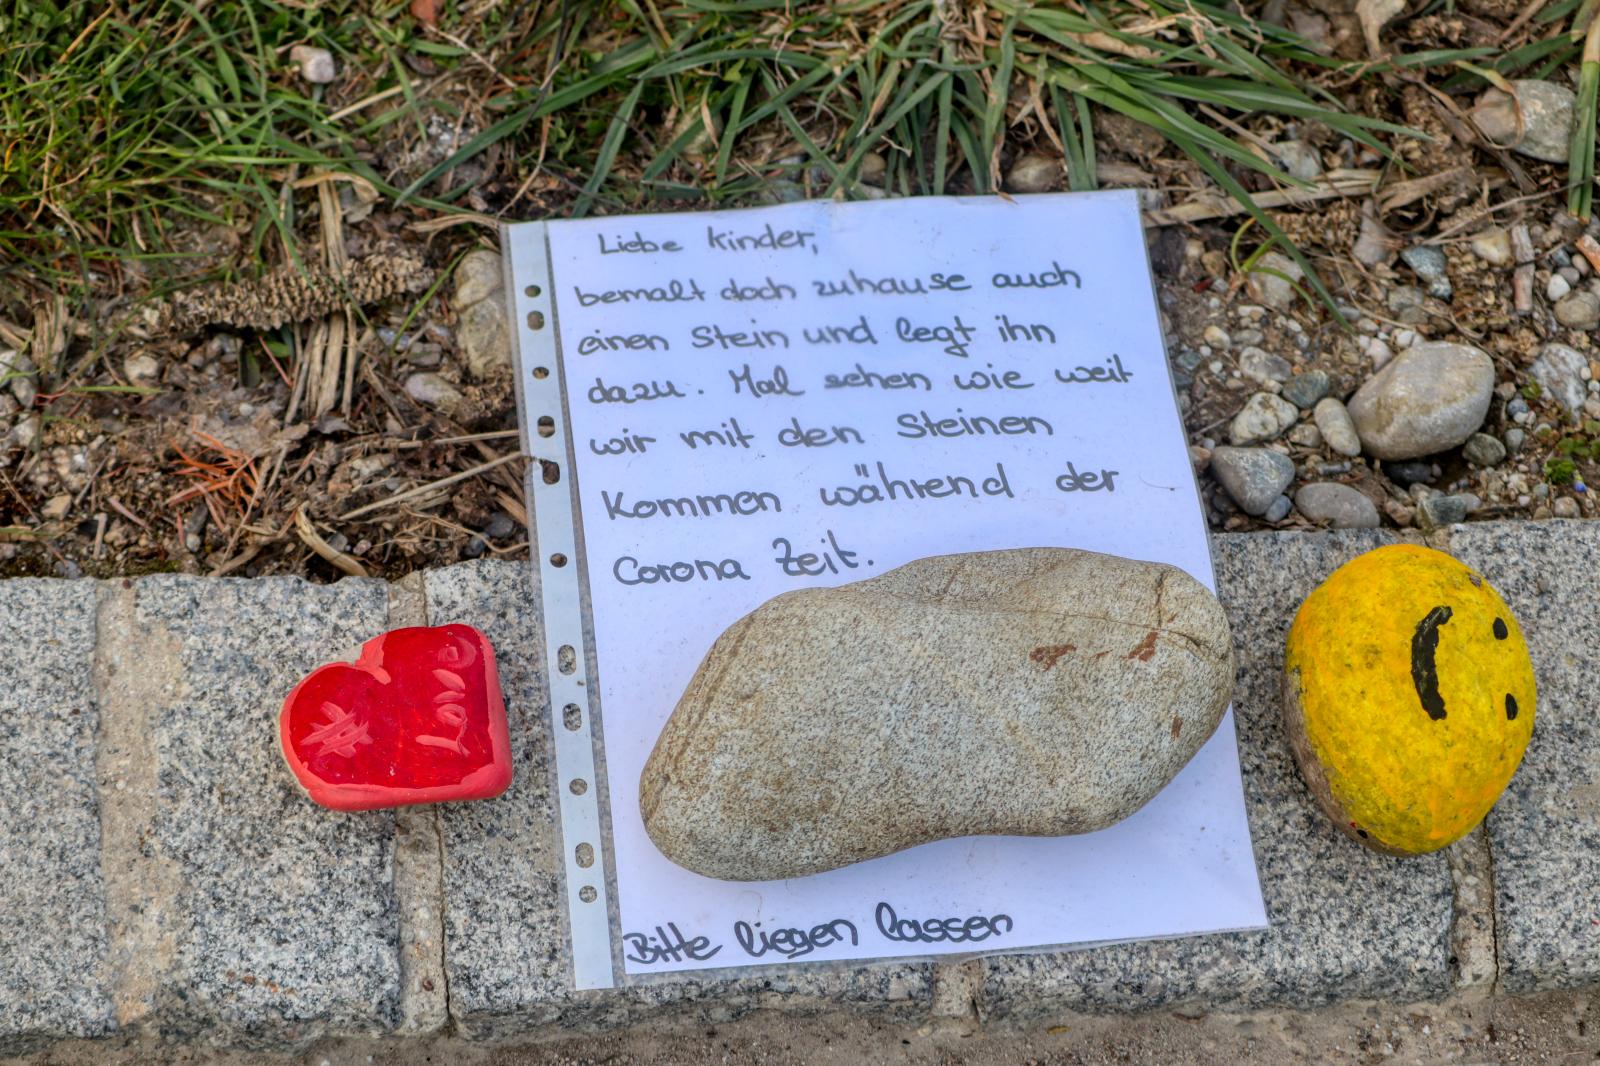 Liebe Kinder,
bemalt doch zuhause auch
einen Stein und legt ihn
dazu. Mal sehen wie weit
wir mit den Steinen
Kommen während der
Corona Zeit.
Bitte liegen lassen
# Love